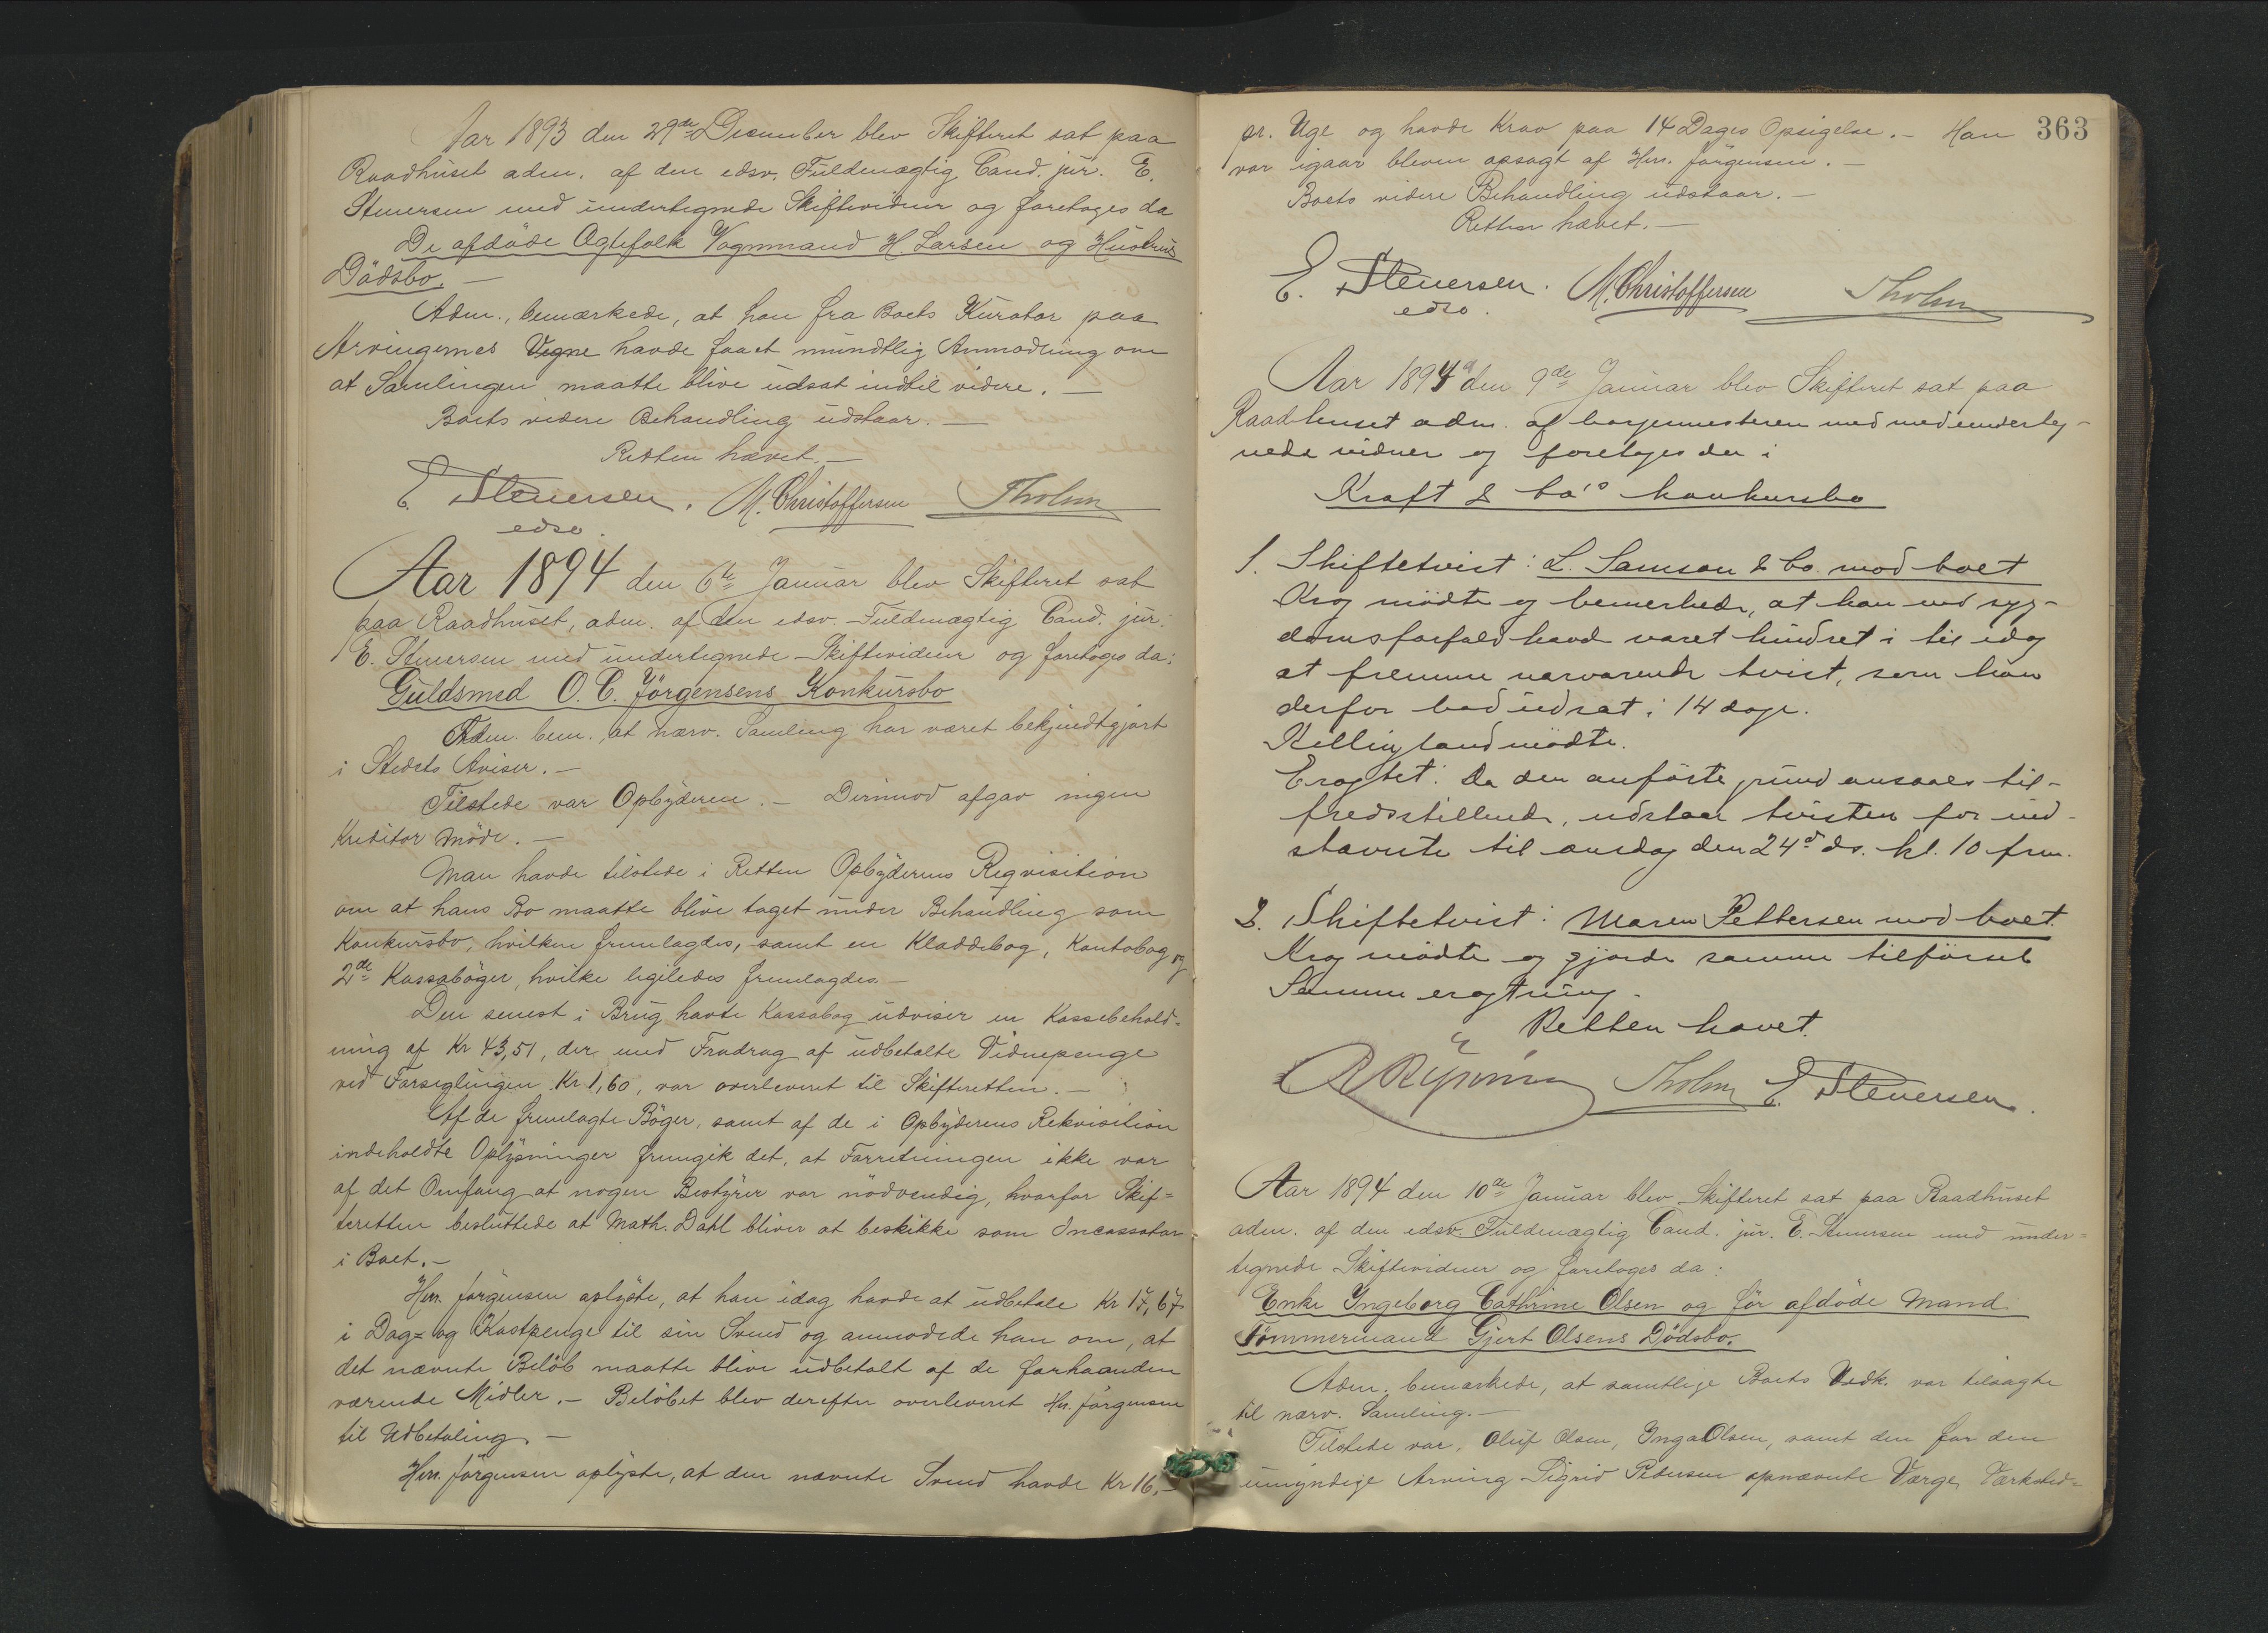 Aar 1893 den 29de December blev Skifteret sat paa
Raadhuset adm. af den edsv. Fuldmægtig Cand. jur. E.
Stenersen med undertegnede Skiftevidner og foretoges da
De afdöde Ægtefolk Vognmand H. Larsen og Hustrus
Dödsbo. —
Adm. bemærkede, at han fra Boets Kurator paa
Arvingernes Vegne havde faaet mundtlig Anmodning om
at Samlingen maatte blive udsat indtil videre. —
Boets videre Behandling udstaar. —
Retten hævet. —
E. Stenersen. M. Christoffersen Tholm
edsv.
Aar 1894 den 6te Januar blev Skifteret sat
paa Raadhuset, adm. af den edsv. Fuldmægtig Cand. jur.
E. Stenersen med undertegnede Skiftevidner og foretoges da:
Guldsmed O. C. Jörgensens Konkursbo
Adm. bem., at nærv. Samling har været bekjendtgjort
i Stedets Aviser. —
Tilstede var Opbyderen. — Derimod afgav ingen
Kreditor Möde. —
Man havde tilstede i Retten Opbyderens Reqvisition
om at hans Bo maatte blive taget under Behandling som
Konkursbo, hvilken fremlagdes, samt en Kladdebog, Kontobog og
2de Kassaböger, hvilke ligeledes fremlagdes. —
Den senest i Brug havte Kassabog udviser en Kassebehold-
ning af Kr 43,51, der med Fradrag af udbetalte Vidnepenge
ved Forseglingen Kr 1,60, var overleveret til Skifteretten. —
Af de fremlagte Böger, samt af de i Opbyderens Rekvisition
indeholdte Oplysninger fremgik det, at Forretningen ikke var
af det Omfang at nogen Bestyrer var nödvendig, hvorfor Skif-
teretten besluttede at Math. Dahl bliver at beskikke som Incassator
i Boet. —
Herr Jörgensen oplyste, at han idag havde at udbetale Kr 17,67
i Dag- og Kostpenge til sin Svend og anmodede han om, at
det nævnte Belöb maatte blive udbetalt af de forhaanden
værende Midler. — Belöbet blev derefter overleveret Hr. Jörgensen
til Udbetaling. —
Herr Jörgensen oplyste, at den nævnte Svend havde Kr 16,-
363
pr. Uge og havde Krav paa 14 Dages Opsigelse. — Han
var igaar bleven opsagt af Herr Jörgensen. —
Boets videre Behandling udstaar. —
Retten hævet. —
E. Stenersen. M. Christoffersen Tholm
edsv.
Aar 1894 den 9de Januar blev Skifteret sat paa
Raadhuset adm. af borgermesteren med medunderteg-
nede vidner og foretoges da i
Kraft & Co's konkursbo
1. Skiftetvist: L. Samson & Co. mod boet
Krog mödte og bemerkede, at han ved syg-
domsforfald havd været hindret i til idag
at fremme nærværende tvist, som han
derfor bad udsat i 14 dage.
Kellingland mödte.
Eragtet: Da den anförte grund ansaaes til-
fredsstillende, udstaar tvisten for ved-
stævnte til onsdag den 24de ds. kl. 10 frm.
2. Skiftetvist: Maren Pettersen mod boet.
Krog mödte og gjorde samme tilförsel
Samme eragtning.
Retten hævet.
Tholm E. Stenersen.
Aar 1894 den 10de Januar blev Skifteret sat paa Raadhuset
adm. af den edsv. Fuldmægtig Cand. jur. E. Stenersen med under-
tegnede Skiftevidner og foretoges da:
Enke Ingeborg Cathrine Olsen og för afdöde Mand
Tömmermand Gjert Olsens Dödsbo.
Adm. bemærkede, at samtlige Boets Vedk. var tilsagte
til nærv. Samling. —
Tilstede var, Oluf Olsen, Inga Olsen, samt den for den
umyndige Arving Sigrid Pedersen opnævnte Værge, Værksted-